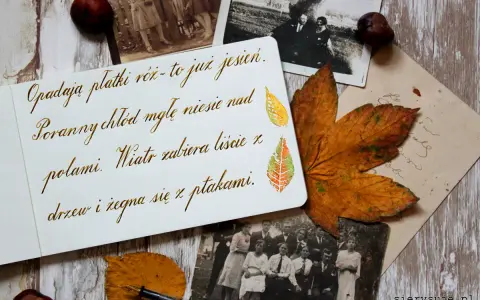 Opadają płatki róż - to już jesień.
Poranny chłód mgłę niesie nad
polami. Wiatr zabiera liście z
drzew i żegna się z ptakami.